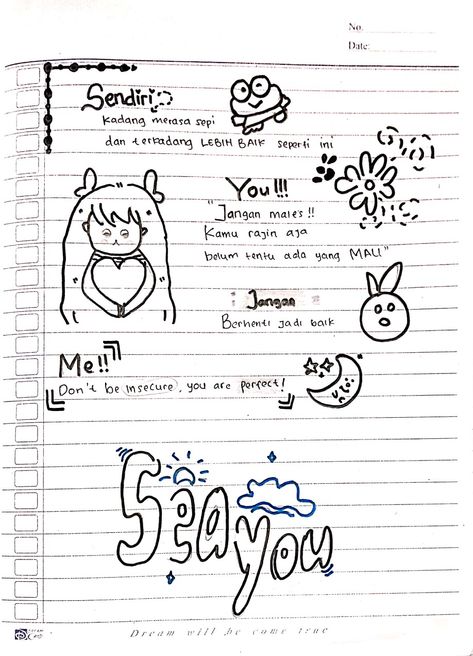 No.
Date:
Sendiri
kadang merasa sepi
dan terkadang LEBIH BAIK seperti ini
You!!!
"Jangan males!!
Kamu rajin aja
belum tentu ada yang MAU"
Jangan
Berhenti jadi baik
Me!!
Don't be insecure, you are perfect!
Sea
you
Dream will be come true